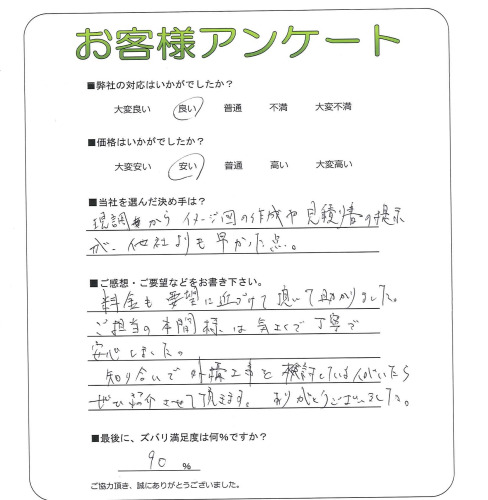 お客様アンケート
■弊社の対応はいかがでしたか？
大変良い 良い 普通 不満 大変不満
■価格はいかがでしたか？
大変安い 安い 普通 高い 大変高い
■当社を選んだ決め手は？
現調から イメージ図の作成や 見積り書の提示
が、他社よりも 早かった点。
■ご感想・ご要望などをお書き下さい。
料金も 要望に近づけて 頂いて 助かりました。
ご担当の 本間様は 気さくで 丁寧で
安心しました。
知り合いで 外構工事を 検討している人がいたら
ぜひ 紹介させて頂きます。 ありがとうございました。
■最後に、ズバリ満足度は何％ですか？
90 ％
ご協力頂き、誠にありがとうございました。